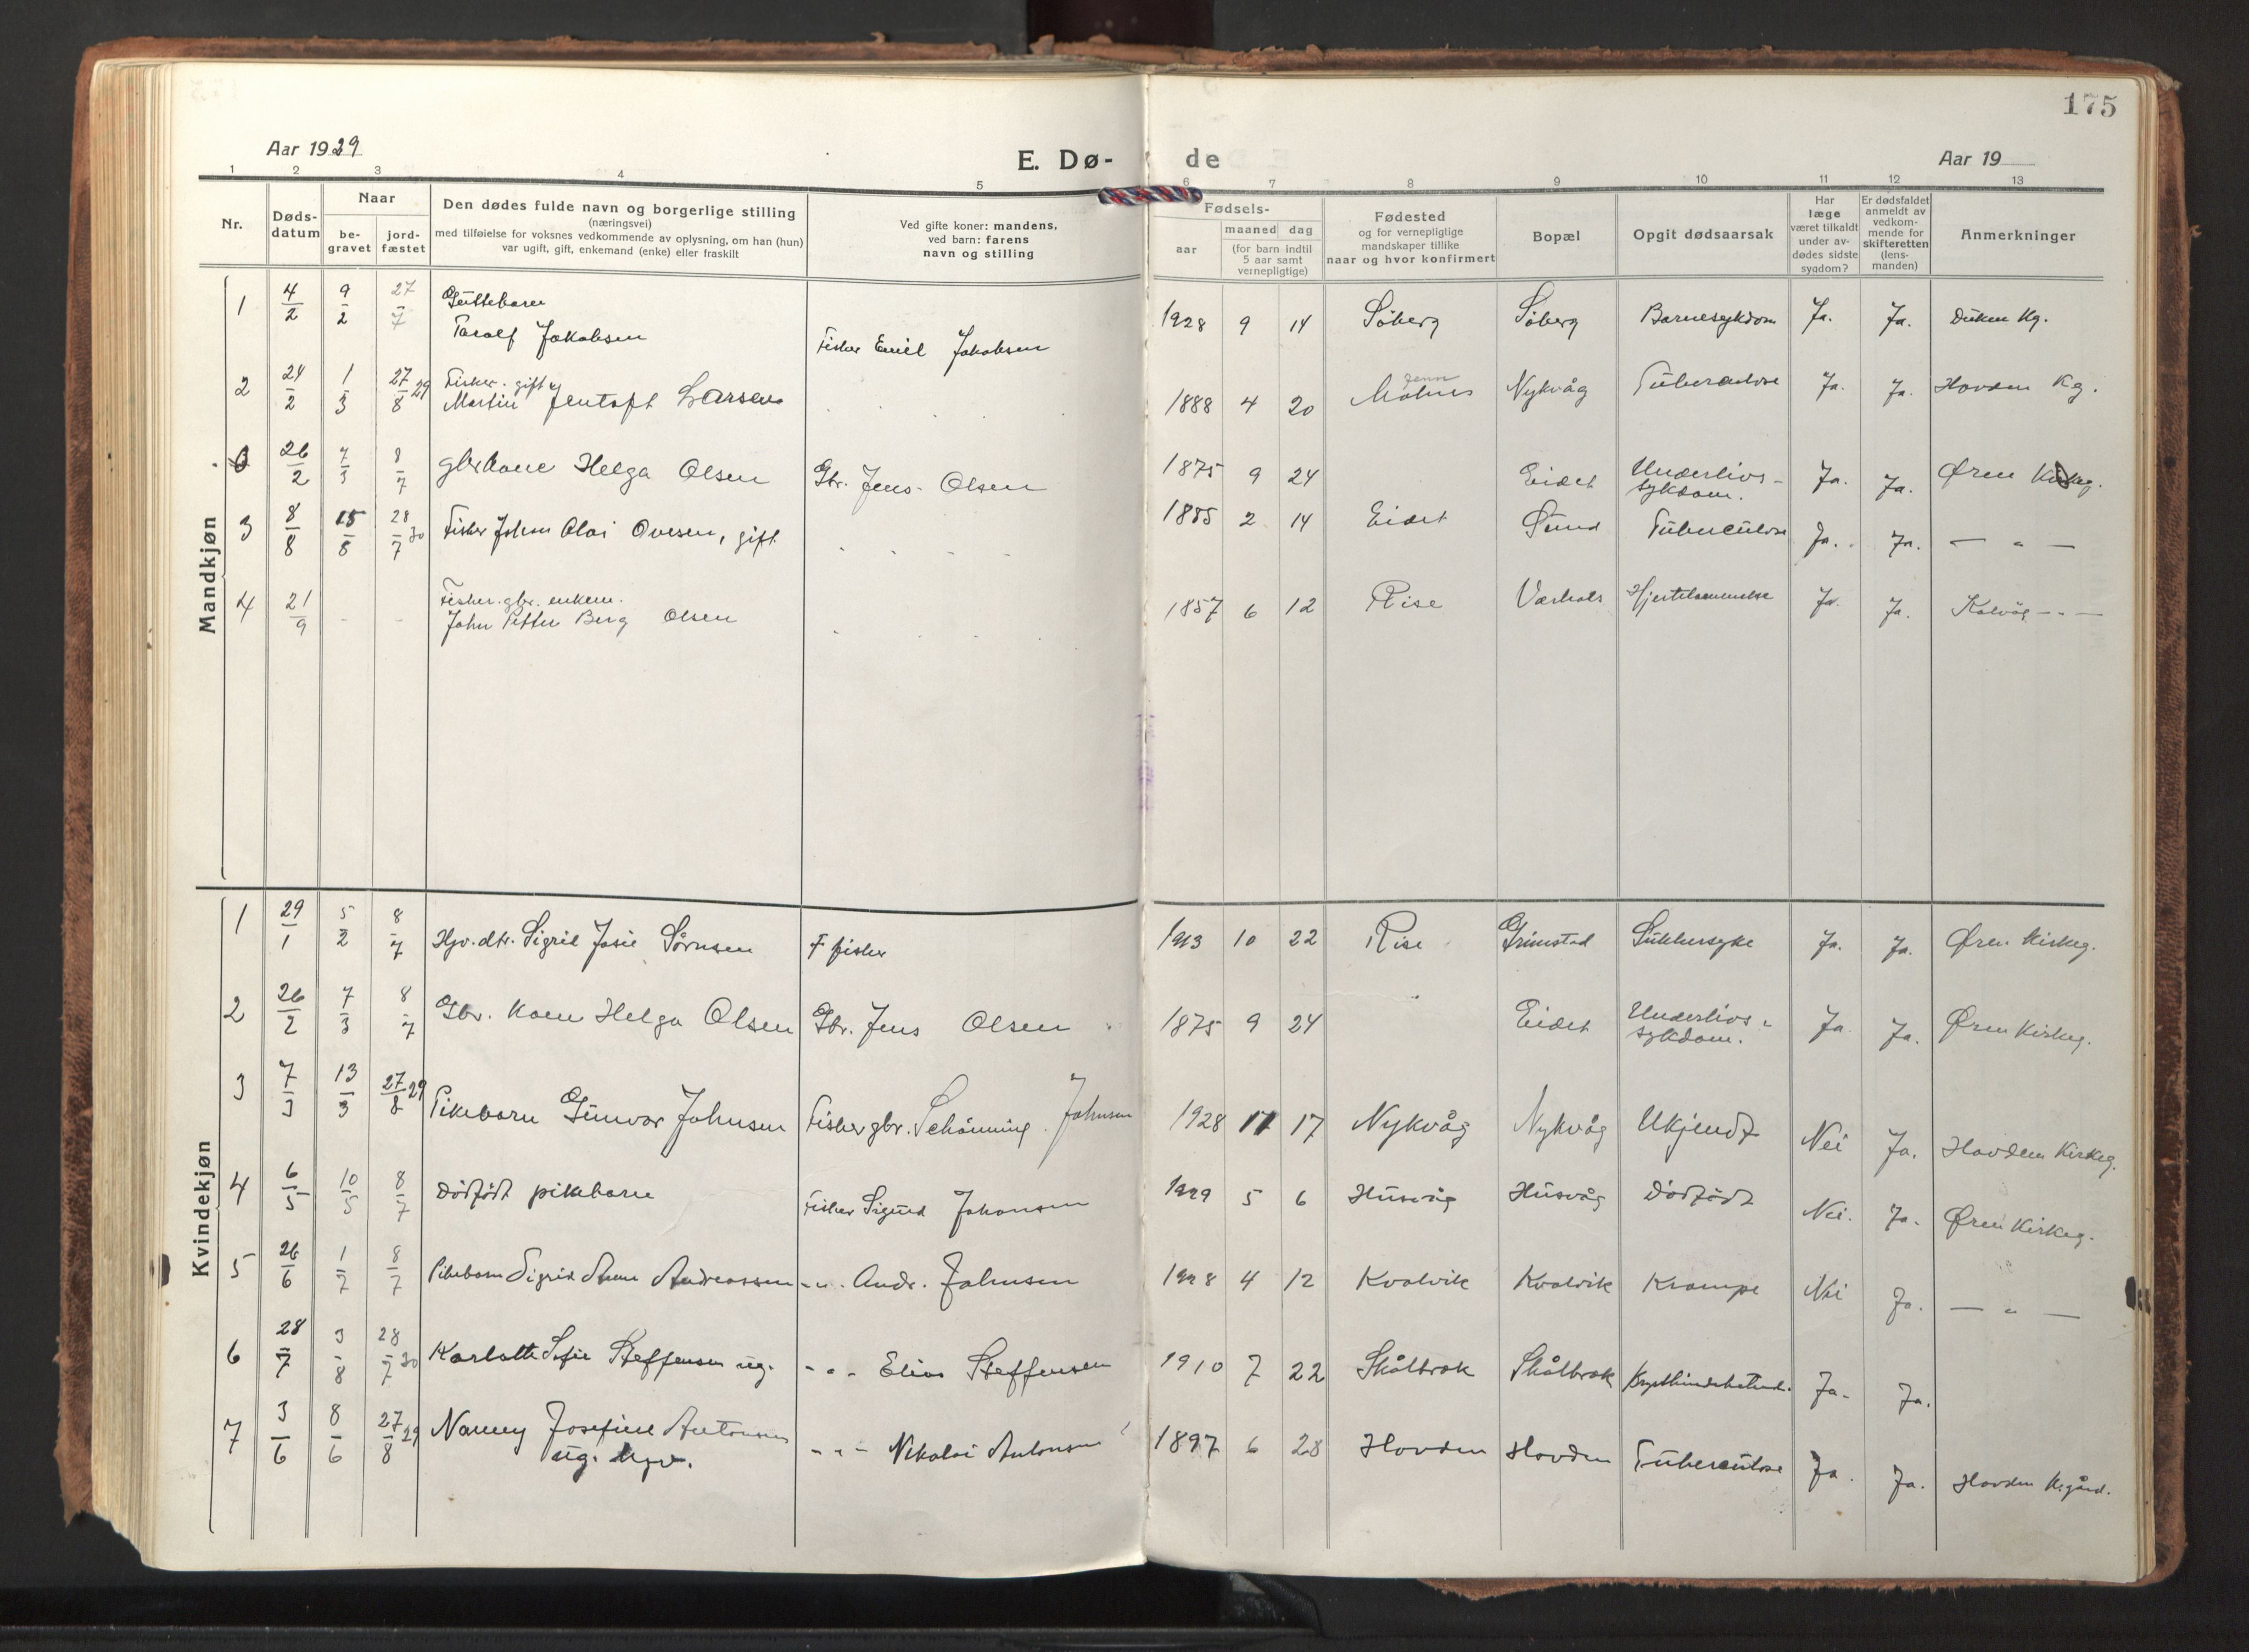 175
Aar 1929
E. Dø-
de
Aar 19
1 2 3 4 5 6 7 8 9 10 11 12 13
Nr.
Døds-
datum
Naar
be-
gravet
jord-
fæstet
Den dødes fulde navn og borgerlige stilling
(næringsvei)
med tilføielse for voksnes vedkommende av oplysning, om han (hun)
var ugift, gift, enkemand (enke) eller fraskilt
Ved gifte koner: mandens,
ved barn: farens
navn og stilling
Fødsels-
aar
maaned dag
(for barn indtil
5 aar samt
vernepligtige)
Fødested
og for vernepligtige
mandskaper tillike
naar og hvor konfirmert
Bopæl
Opgit dødsaarsak
Har
læge
været tilkaldt
under av-
dødes sidste
sygdom?
Er dødsfaldet
anmeldt av
vedkom-
mende for
skifteretten
(lens-
manden)
Anmerkninger
Mandkjøn
1 4/2 9/2 27/7 Guttebarn
Taralf Jakobsen Fisker Emil Jakobsen 1928 9 14 Söberg Söberg Barnesykdom Ja. Ja. Kg.
2 24/2 1/3 27/8 29 Fisker. gift
Martin Jentoft Larsen 1888 4 20 Nykvåg Tuberculose Ja. Ja. Hovden Kg.
26/2 7/3 8/7 gbrkone Helga Olsen Gbr. Jens Olsen 1875 9 24 Eidet Underlivs-
sykdom. Ja. Ja. Øren
3 8/8 15/8 28/7 30 Fisker Johan Olai Ovesen, gift 1885 2 14 Eidet Sund Tuberculose Ja. Ja. — " —
4 21/9 - - Fisker. gbr. enkem.
John Petter Berg Olsen 1857 6 12 Rise Hjertelammelse Ja. Ja. — " —
Kvindekjøn
1 29/1 5/2 8/7 Hjv. dtr. Sigrid Josie Sörnsen F fisker 1913 10 22 Rise Grimstad Sukkersyke Ja. Ja. Øren Kirkeg.
2 26/2 7/3 8/7 Gbr. kone Helga Olsen Gbr. Jens Olsen 1875 9 24 Eidet Underlivs-
sykdom. Ja Ja. Øren Kirkeg.
3 7/3 13/3 27/8 29 Pikebarn Gunvor Johnsen Fisker gbr. Schönning Johnsen 1928 11 17 Nykvåg Nykvåg Ukjendt Nei Ja. Hovden Kirkeg.
4 6/5 10/5 8/7 Dödfödt pikebarn Fisker Sigurd Johansen 1929 5 6 Husvåg Husvåg Dödfödt Nei. Ja. Øren Kirkeg.
5 26/6 1/7 8/7 Pikebarn Sigrid Anne Andreassen - " - Andr. Johnsen 1928 4 12 Kvalvik Kvalvik Krampe Nei Ja. — " —
6 28/7 3/8 28/7 30 Karlotte Sofie Steffensen ug. - " - Elias Steffensen 1910 7 22 Skålbrek Skålbrek Ja. Ja.
7 3/6 8/6 27/8 29 Nanny Josefine Antonsen
ug. hjv. - " - Nikolai Antonsen 1897 6 28 Hovden Hovden Tuberculose Ja. Ja. Hovden Kgård.